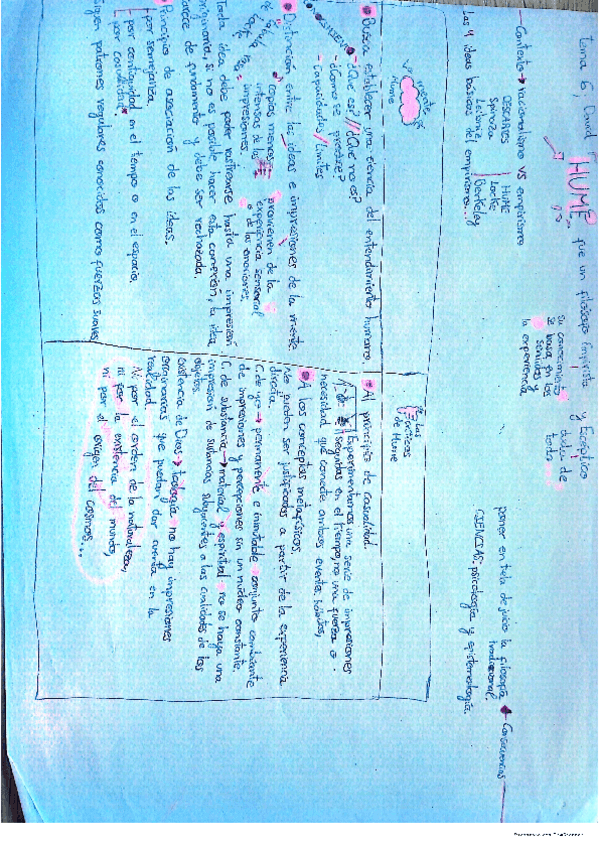 Tema 6, David
HUME, fue un filósofo Empirista y Escéptico
su conocimiento
se basa en los
sentidos y
la experiencia
duda de
todo
Contexto → racionalismo VS empirismo
DESCARTES | HUME
Spinoza | Locke
Leibniz | Berkeley
Las 4 ideas básicas del empirismo...
Consecuencias
poner en tela de juicio la filosofía
tradicional.
CIENCIAS: psicología y epistemología.
Hume
Busca establecer una ciencia del entendimiento humano.
¿Qué es? // ¿Qué no es?
¿Cómo se produce?
Capacidades / Límites
Distinción entre las ideas e impresiones de la mente.
copias menos
intensas de las
impresiones.
provienen de la
experiencia sensorial
o de las emociones.
Toda idea debe poder rastrearse hasta una impresión
originaria, si no es posible hacer esta conexión, la idea
carece de fundamento y debe ser rechazada.
Principios de asociación de las ideas.
por semejanza
por contigüidad en el tiempo o en el espacio.
por causalidad
siguen patrones regulares conocidos como fuerzas suaves
Las
críticas
de Hume
Al principio de causalidad.
Experimentamos una serie de impresiones
seguidas en el tiempo, no una fuerza o
necesidad que conecte ambos eventos.
A los conceptos metafísicos.
No pueden ser justificados a partir de la experiencia
directa.
C. de yo → permanente e inmutable → conjunto cambiante
de impresiones y percepciones sin un núcleo constante.
C. de substancia → material y espiritual → no se haya una
impresión de substancias subyacentes a las cualidades de los
objetos.
Existencia de Dios → teología → no hay impresiones
originarias que puedan dar cuenta en la
realidad.
Ni por el orden de la naturaleza,
ni por la existencia del mundo,
ni por el origen del cosmos...